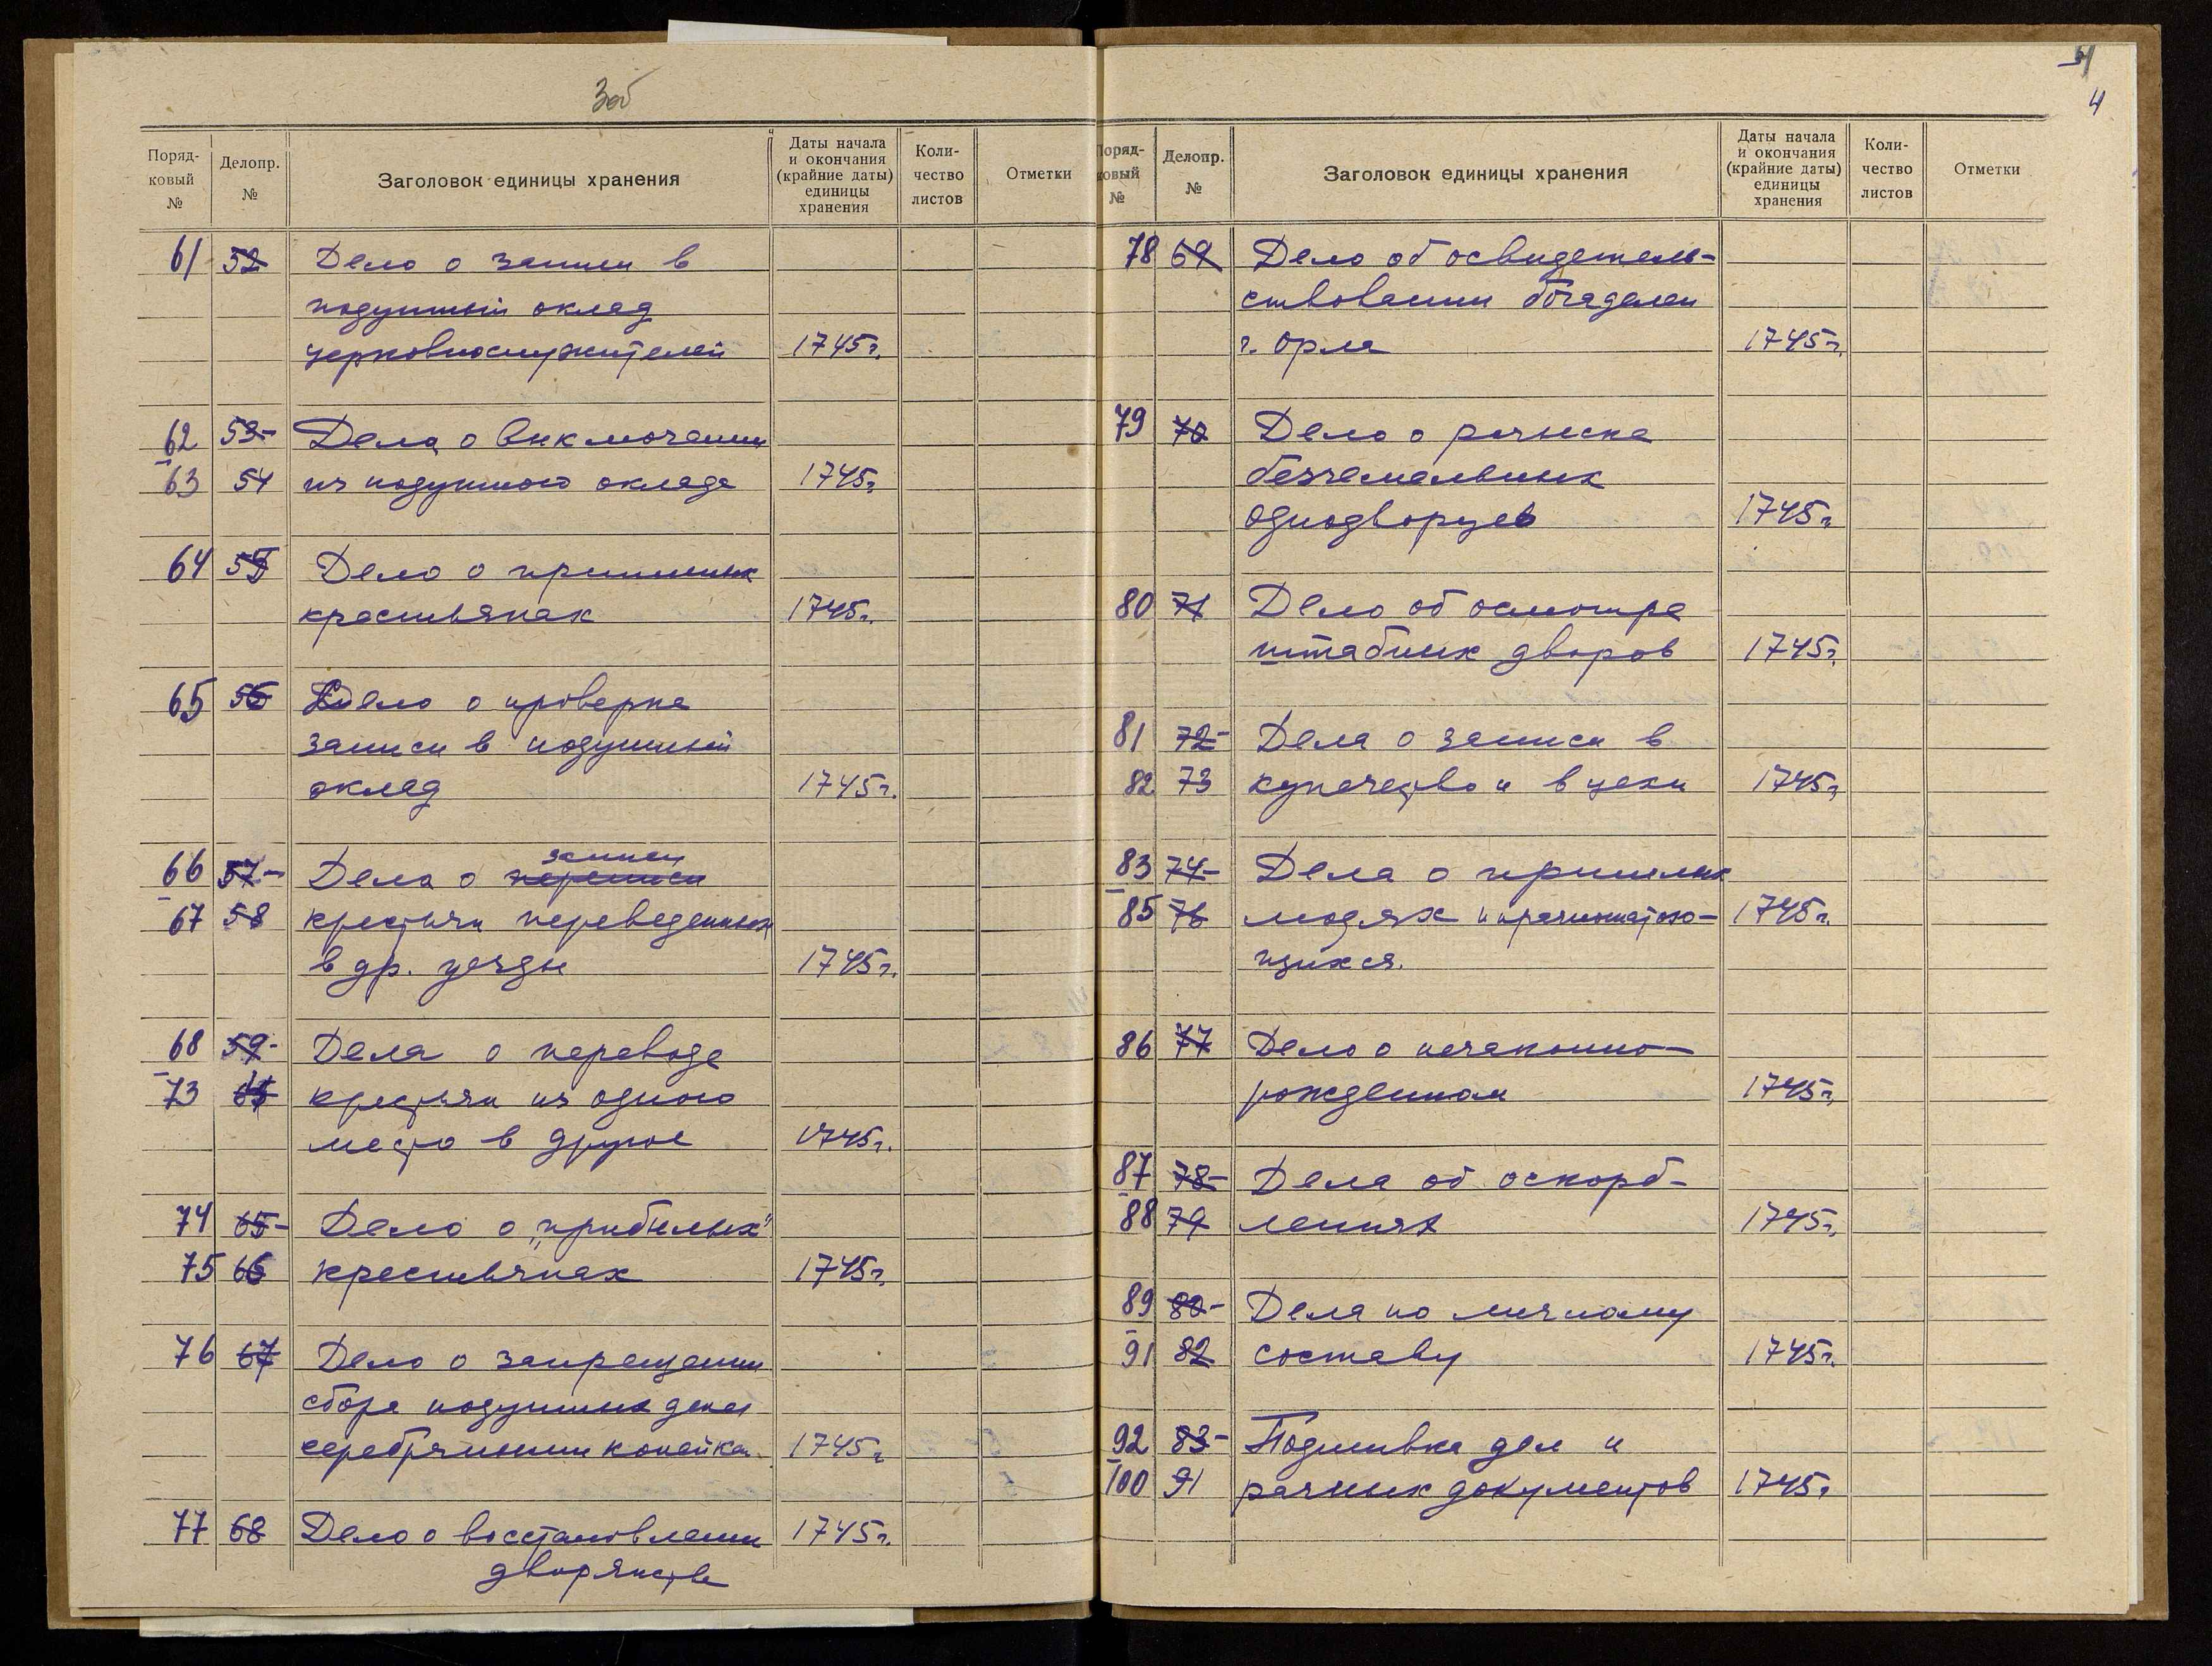 3об
Поряд-
ковый
№
Делопр.
№
Заголовок единицы хранения
Даты начала
и окончания
(крайние даты)
единицы
хранения
Коли-
чество
листов
Отметки
61 52 Дело о записи в
подушный оклад
церковнослужителей 1745г.
62 53- Дела о выключении
63 54 из подушного оклада 1745г.
64 55 Дело о пришлых
крестьянах 1745г.
65 56 Дело о проверке
записи в подушный
оклад 1745г.
записи
66 57- Дела о переписи
67 58 крестьян переведенных
в др. уезды 1745г.
68 59- Дела о переводе
73 64 крестьян из одного
место в другое 1745г.
74 65- Дело о „прибылых"
75 66 крестьянах 1745г.
76 67 Дело о запрещении
сбора подушных денег
серебряными копейкам 1745г
77 68 Дело о восстановлении 1745г.
дворянства
4
Поряд-
ковый
№
Делопр.
№
Заголовок единицы хранения
Даты начала
и окончания
(крайние даты)
единицы
хранения
Коли-
чество
листов
Отметки
78 69 Дело об освидетель-
ствовании богаделен
г. Орла 1745г.
79 70 Дело о розыске
безземельных
однодворцев 1745г.
80 71 Дело об осмотре
штабных дворов 1745г.
81 72- Дела о записи в
82 73 купечество и в цехи 1745г.
83 74- Дела о пришлых
85 76 людях и празношатаю- 1745г.
щихся.
86 77 Дело о незаконно-
рожденном 1745г.
87 78- Дела об оскорб-
88 79 лениях 1745г.
89 80- Дела по личному
91 82 составу 1745г.
92 83- Подшивка дел и
100 91 разных документов 1745г.